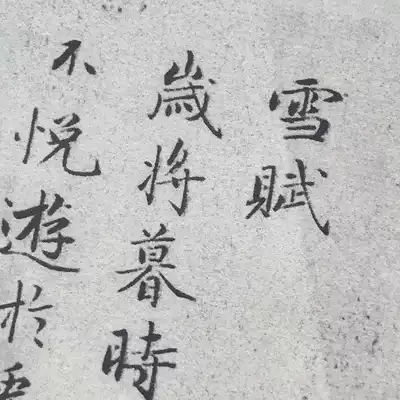 雪賦
歲將暮時
不悅遊於